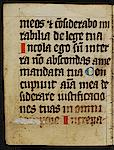 meos et considerabo mi
rabilia de lege tua
Incola ego sum in ter
ra non abscondas a me
mandata tua Con
cupiuit anima mea de
siderare iustificatio
nes tuas in omni
tempore Increpa